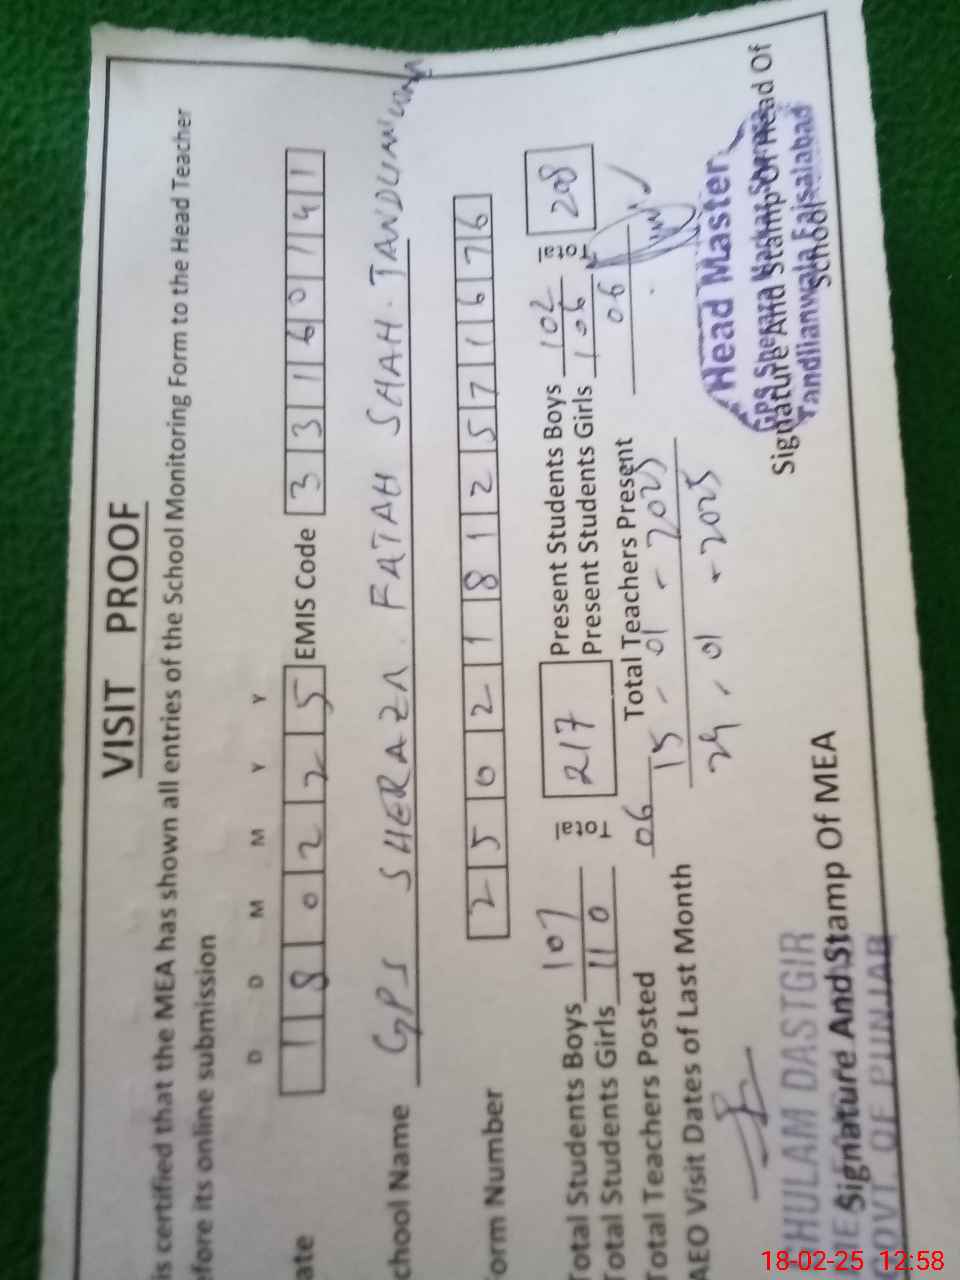 VISIT PROOF
is certified that the MEA has shown all entries of the School Monitoring Form to the Head Teacher
fore its online submission
D D M M Y Y
ate 1 8 0 2 2 5 EMIS Code 3 3 1 6 0 1 4 1
chool Name GPS SHERAZA. FATAH SHAH. TANDLIANWALA
orm Number 2 5 0 2 1 1 8 1 2 5 7 1 6 7 6
Total Students Boys 107 Total 217 Present Students Boys 102 Total 208
Total Students Girls 110 Present Students Girls 106
Total Teachers Posted 06 Total Teachers Present 06
AEO Visit Dates of Last Month 15-01-2025
29-01-2025
Head Master
GPS Sheraza
Tandlianwala Faisalabad
Signature And Stamp Of Head Of
School
HULAM DASTGIR
Signature And Stamp Of MEA
GOVT. OF PUNJAB
18-02-25 12:58